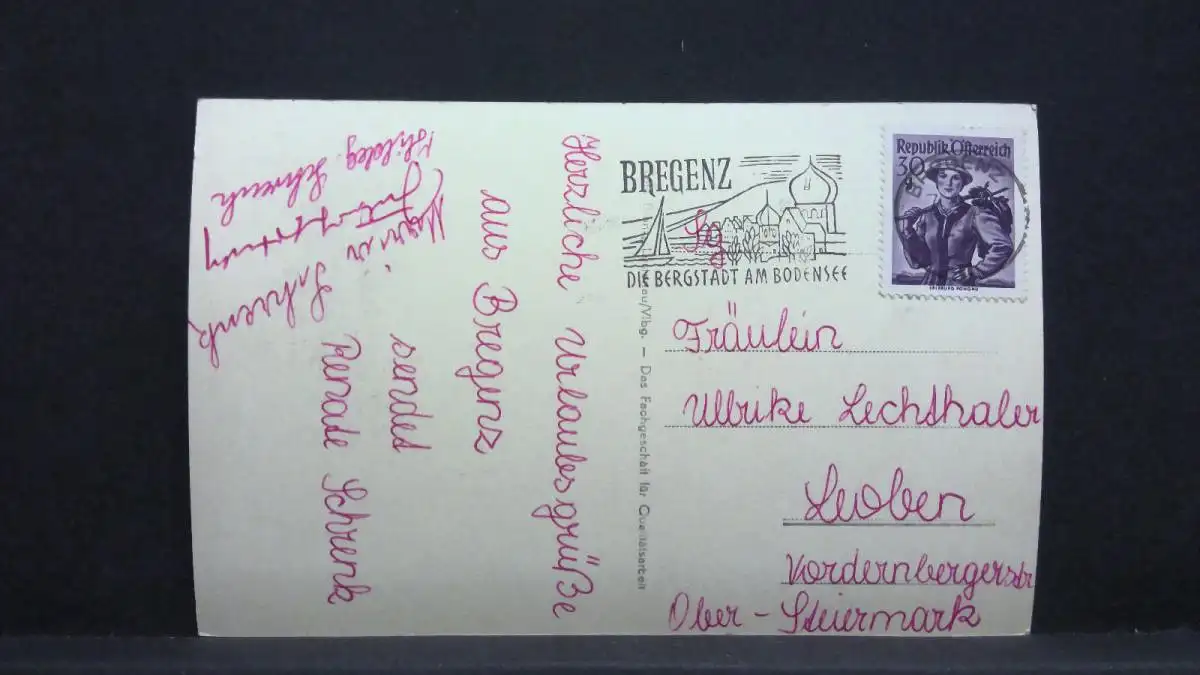 Herzliche Urlaubsgrüße
aus Bregenz
sendet
Renate Schrenk
Schrenk
Hildeg. Schrenk
au/Vlbg. — Das Fachgeschäft für Qualitätsarbeit
BREGENZ
DIE BERGSTADT AM BODENSEE
Republik Österreich
30 g
BREGENZ
Fräulein
Ullrike Lechthaler
Leoben
Vordernbergerstr
Ober-Steiermark